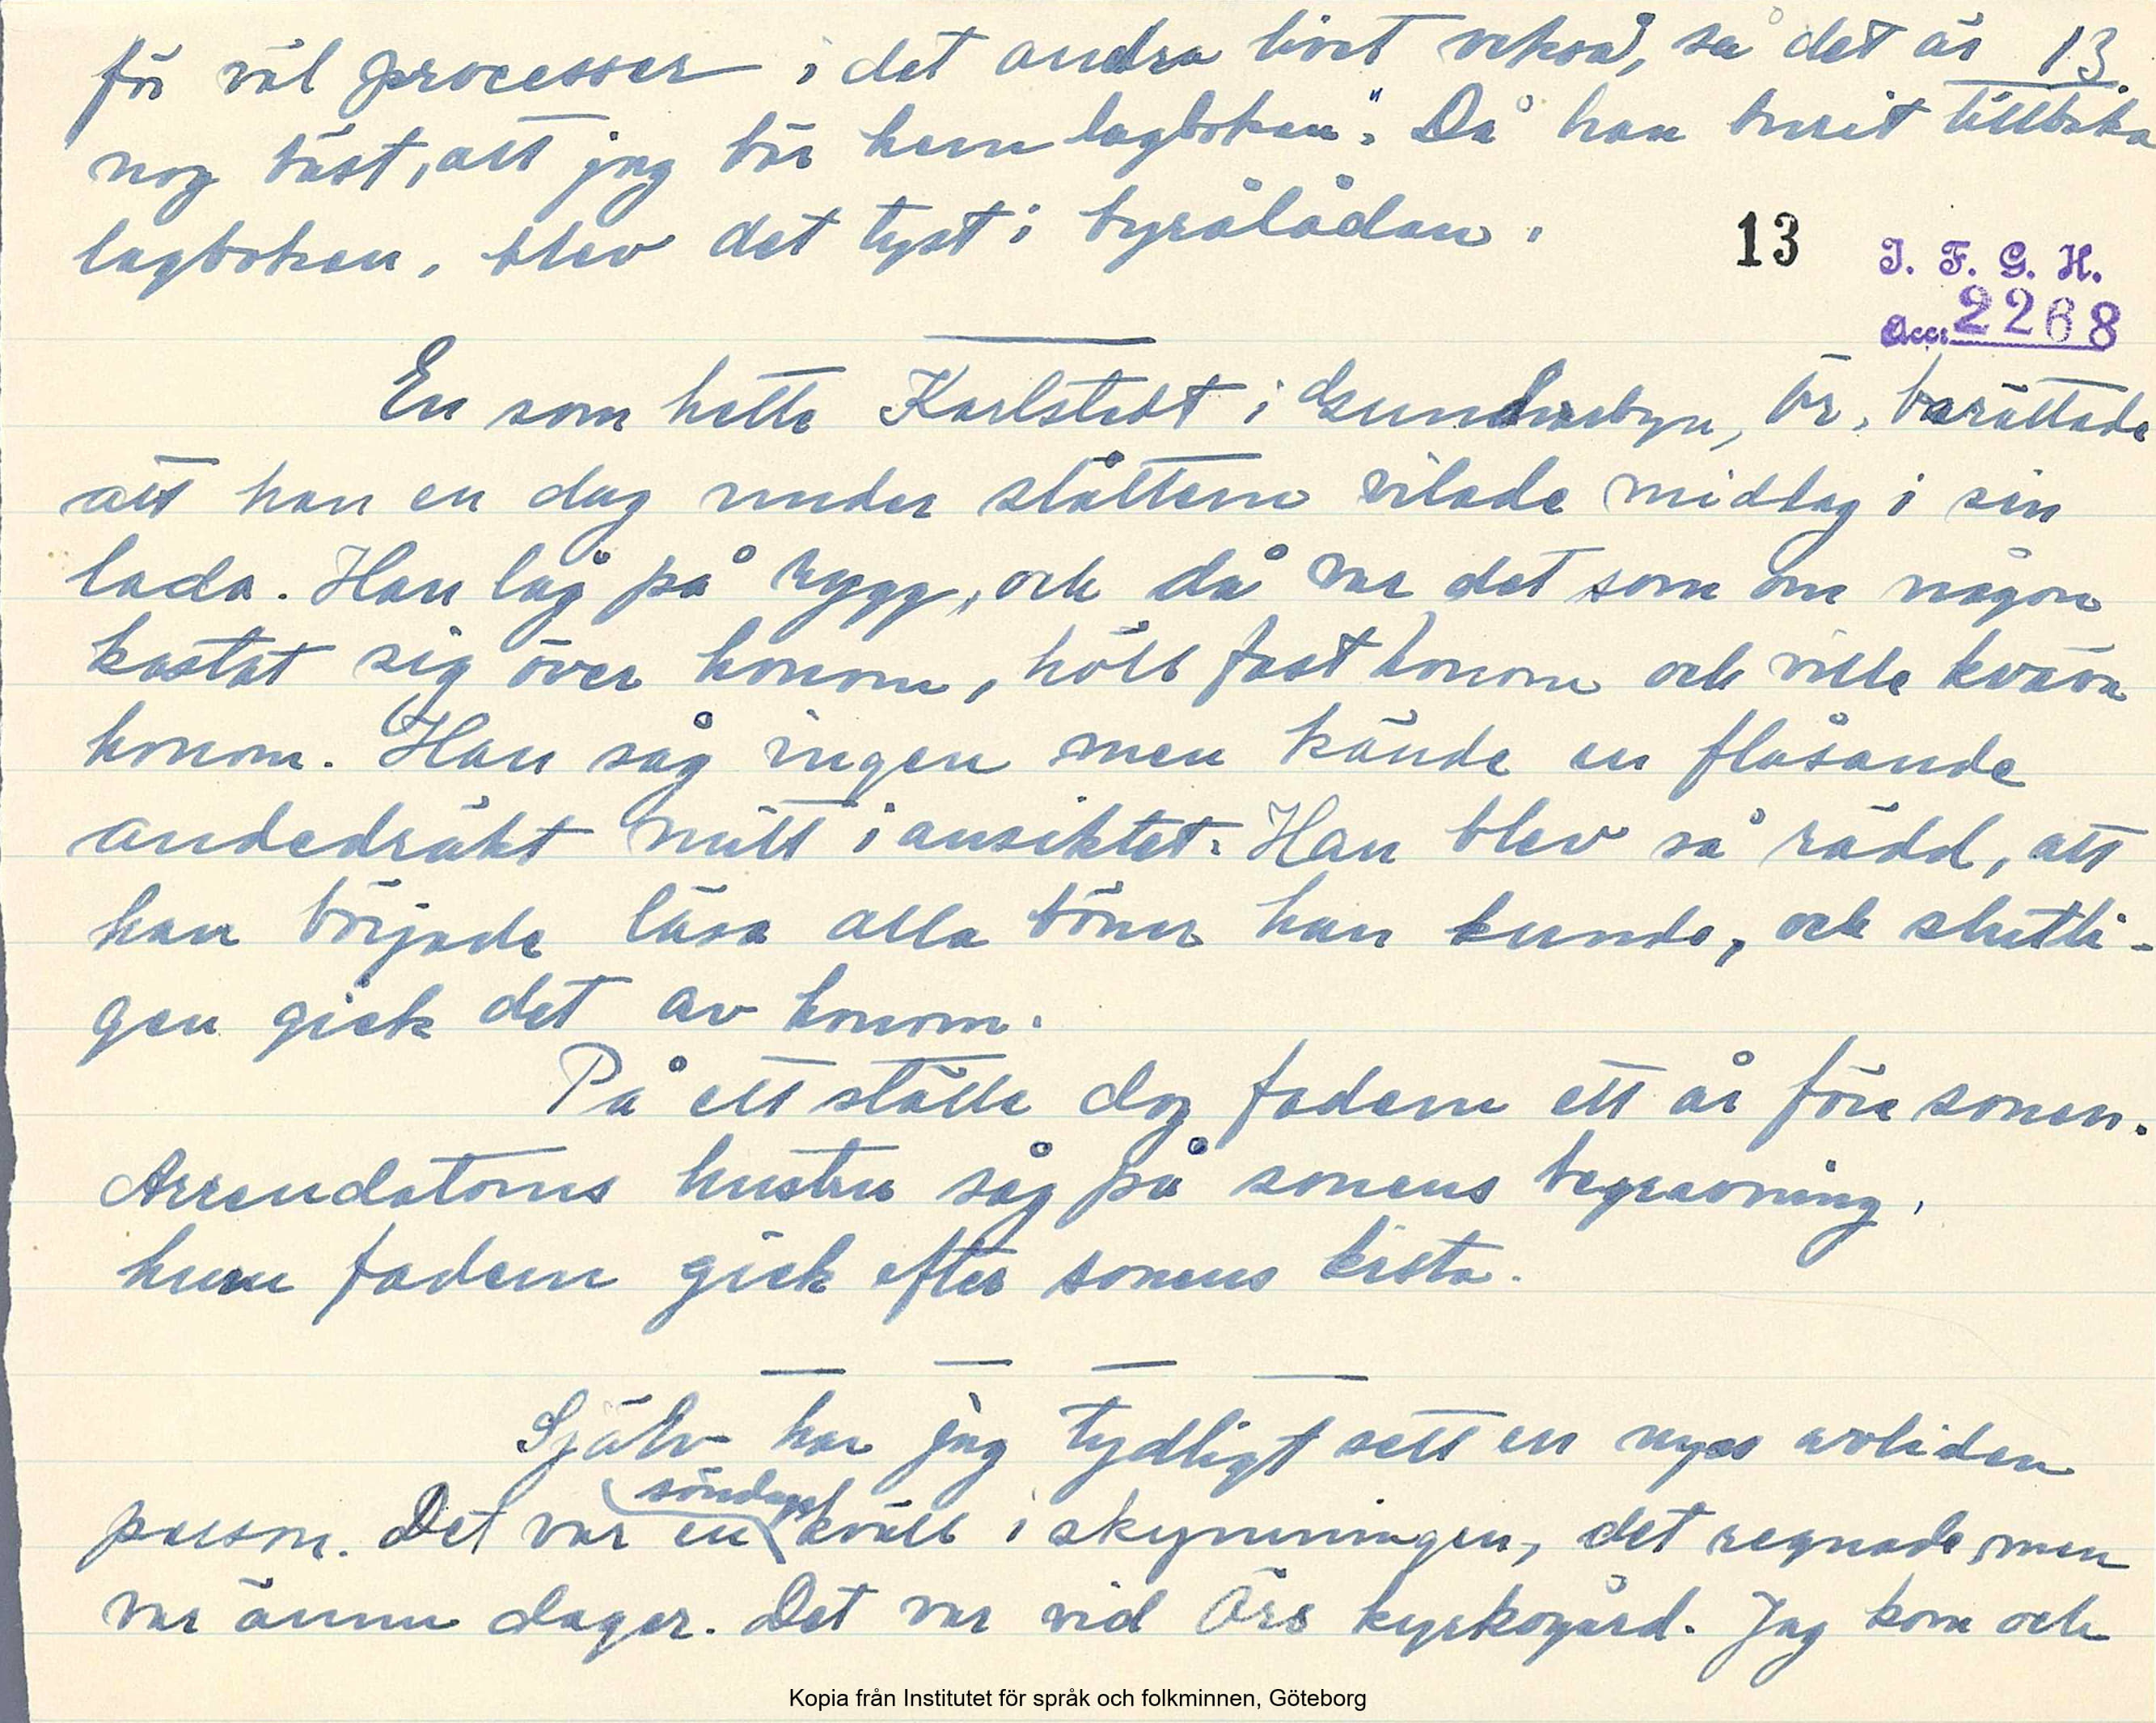 för väl processer i det andra livet också, så det är 13
nog bäst, att jag bär hem lagboken". Då han burit tillbaka
lagboken, blev det tyst i byrålådan.
13 I. F. G. H.
Acc. 2268
En som hette Karlstedt i Gundersbyn, Ör, berättade
att han en dag under slåttern vilade middag i sin
lada. Han låg på rygg, och då var det som om någon
kastat sig över honom, höll fast honom och ville kväva
honom. Han såg ingen men kände en flåsande
andedräkt mitt i ansiktet. Han blev så rädd, att
han började läsa alla böner han kunde, och slutli-
gen gick det av honom.
På ett ställe dog fadern ett år före sonen.
Arrendatorns hustru såg på sonens begravning,
huru fadern gick efter sonens kista.
Själv har jag tydligt sett en nyss avliden
söndags
person. Det var en kväll i skymningen, det regnade men
var ännu dager. Det var vid Örs kyrkogård. Jag kom och
Kopia från Institutet för språk och folkminnen, Göteborg